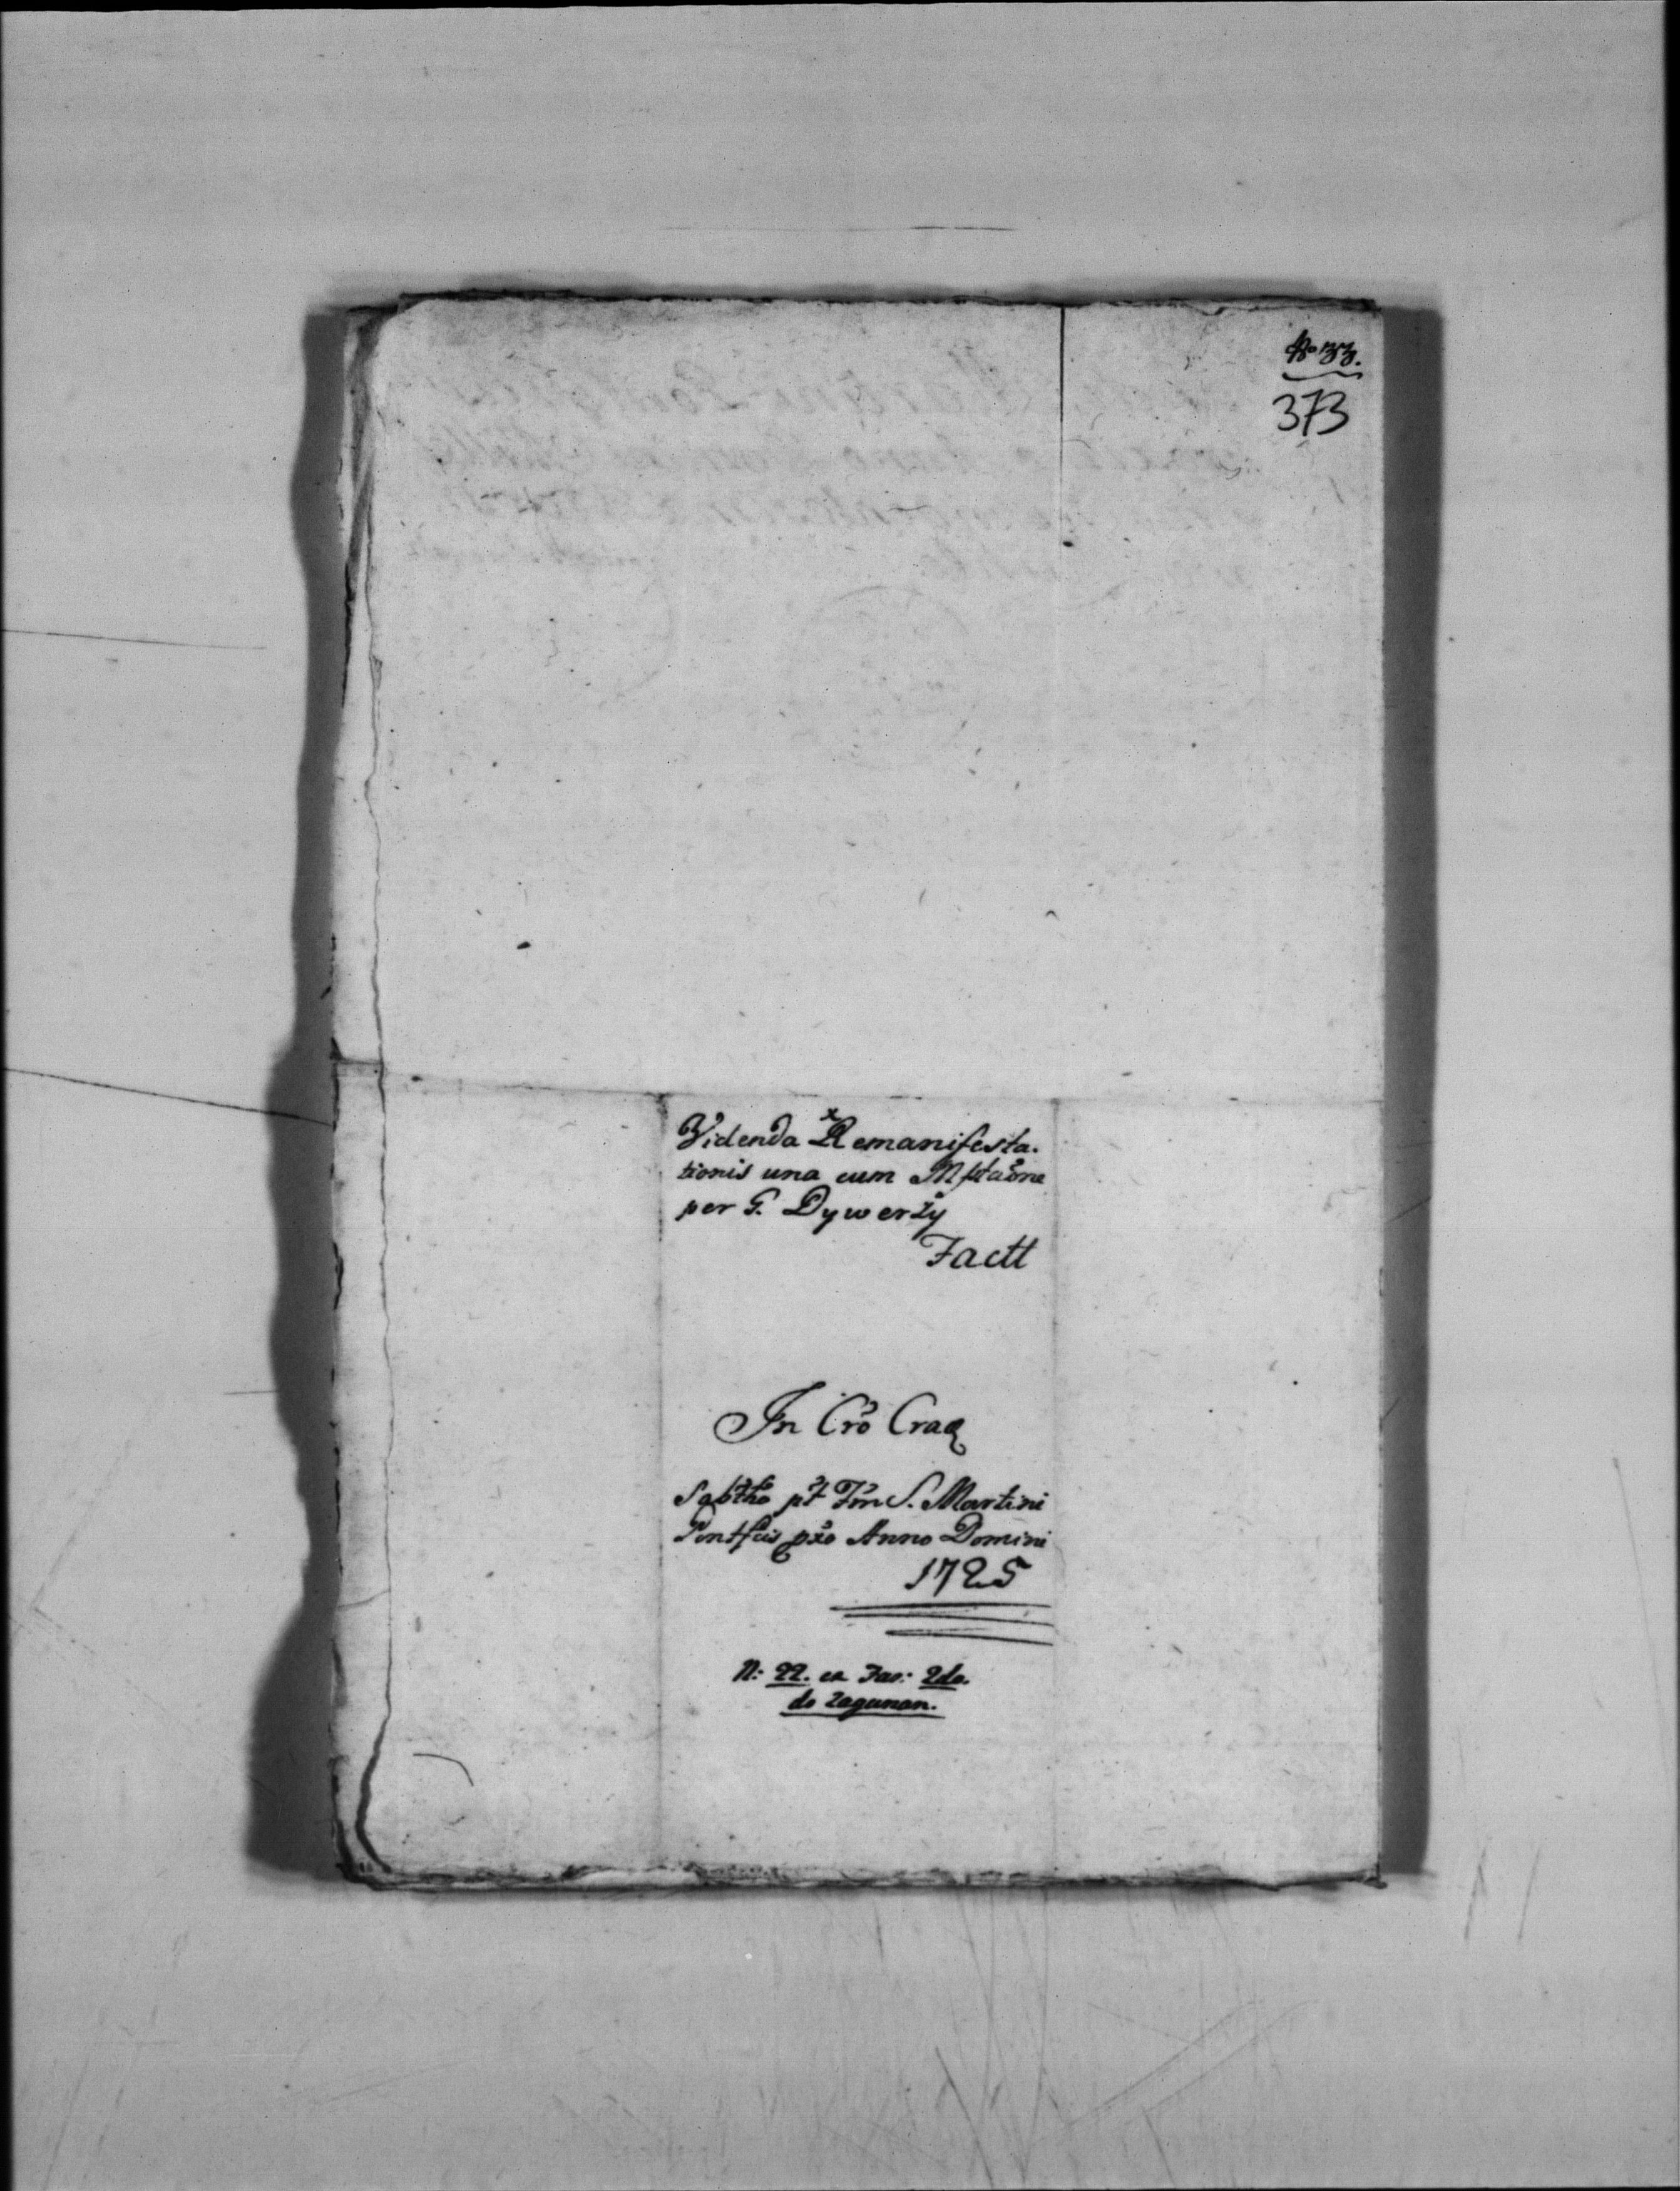 No 33.
373
Videnda Remanifesta.
tionis una cum Mftaõne
per G. Dywerży
Factt
In Crõ Crac
Sabtho pt Fm S. Martini
Pontfcis pxo Anno Domini
1725
N: 22. ex Fas: 2do.
do Zaguman.